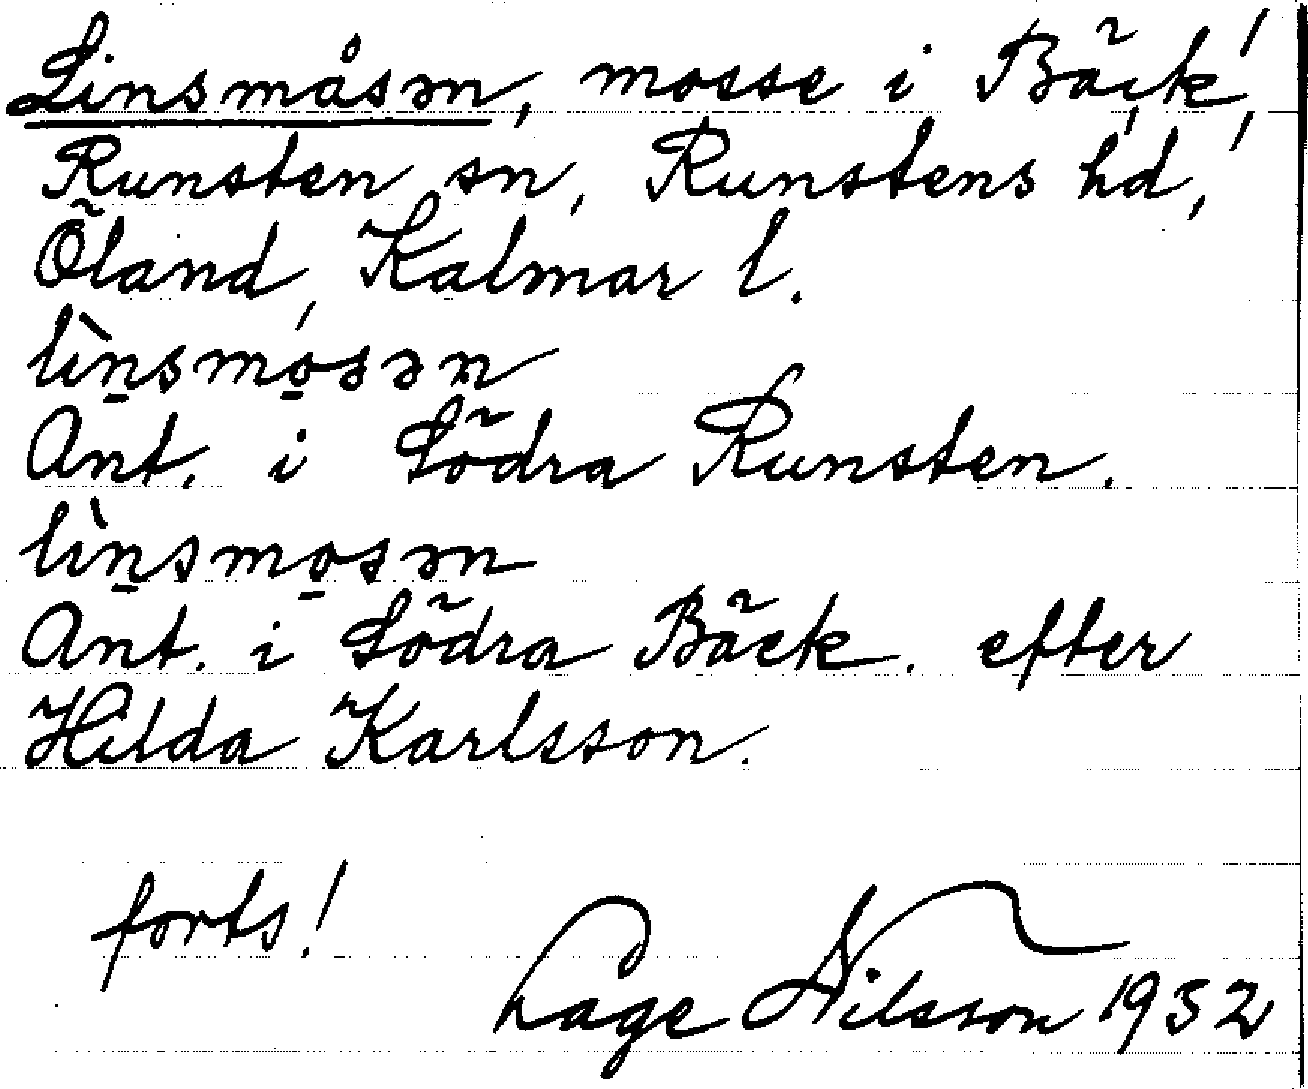 Linsmåsən, mosse i Bäck!,
Runsten sn, Runstens hd,!
Öland, Kalmar l.
lìn̠smo̠sən
Ant. i Södra Runsten.
lìn̠smo̠sən
Ant. i Södra Bäck. efter
Hilda Karlsson.
forts!
Lage Nilsson 1932